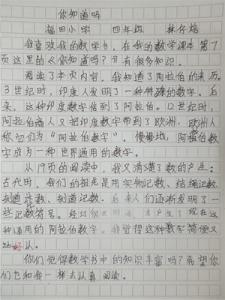 你知道吗
福田小学 四年级
我喜欢我的数学书，在我的数学课本第7
页这里的《你知道吗？》有很多知识。
阅读了本页内容，我知道了阿拉伯的来历
3世纪时，印度人发明了一种特殊的数字。后
来，这种印度数字传到了阿拉伯。12世纪时，
阿拉伯商人又把印度数字带到了欧洲，欧洲人
称它们为“阿拉伯数字”。慢慢地，阿拉伯数
字成为一种世界通用的数字。
从19页的阅读中，我又清楚了数的产生：
古代时，我们的祖先是用实物记数、结绳记数
刻道记数。后来人们逐渐发明了一
些记数符号。产生了现在这
种通用的阿拉伯数字。我觉得这种数字简便又
好认。
你们觉得数学书中的知识丰富吗？希望你
们也和我一样去认真阅读。